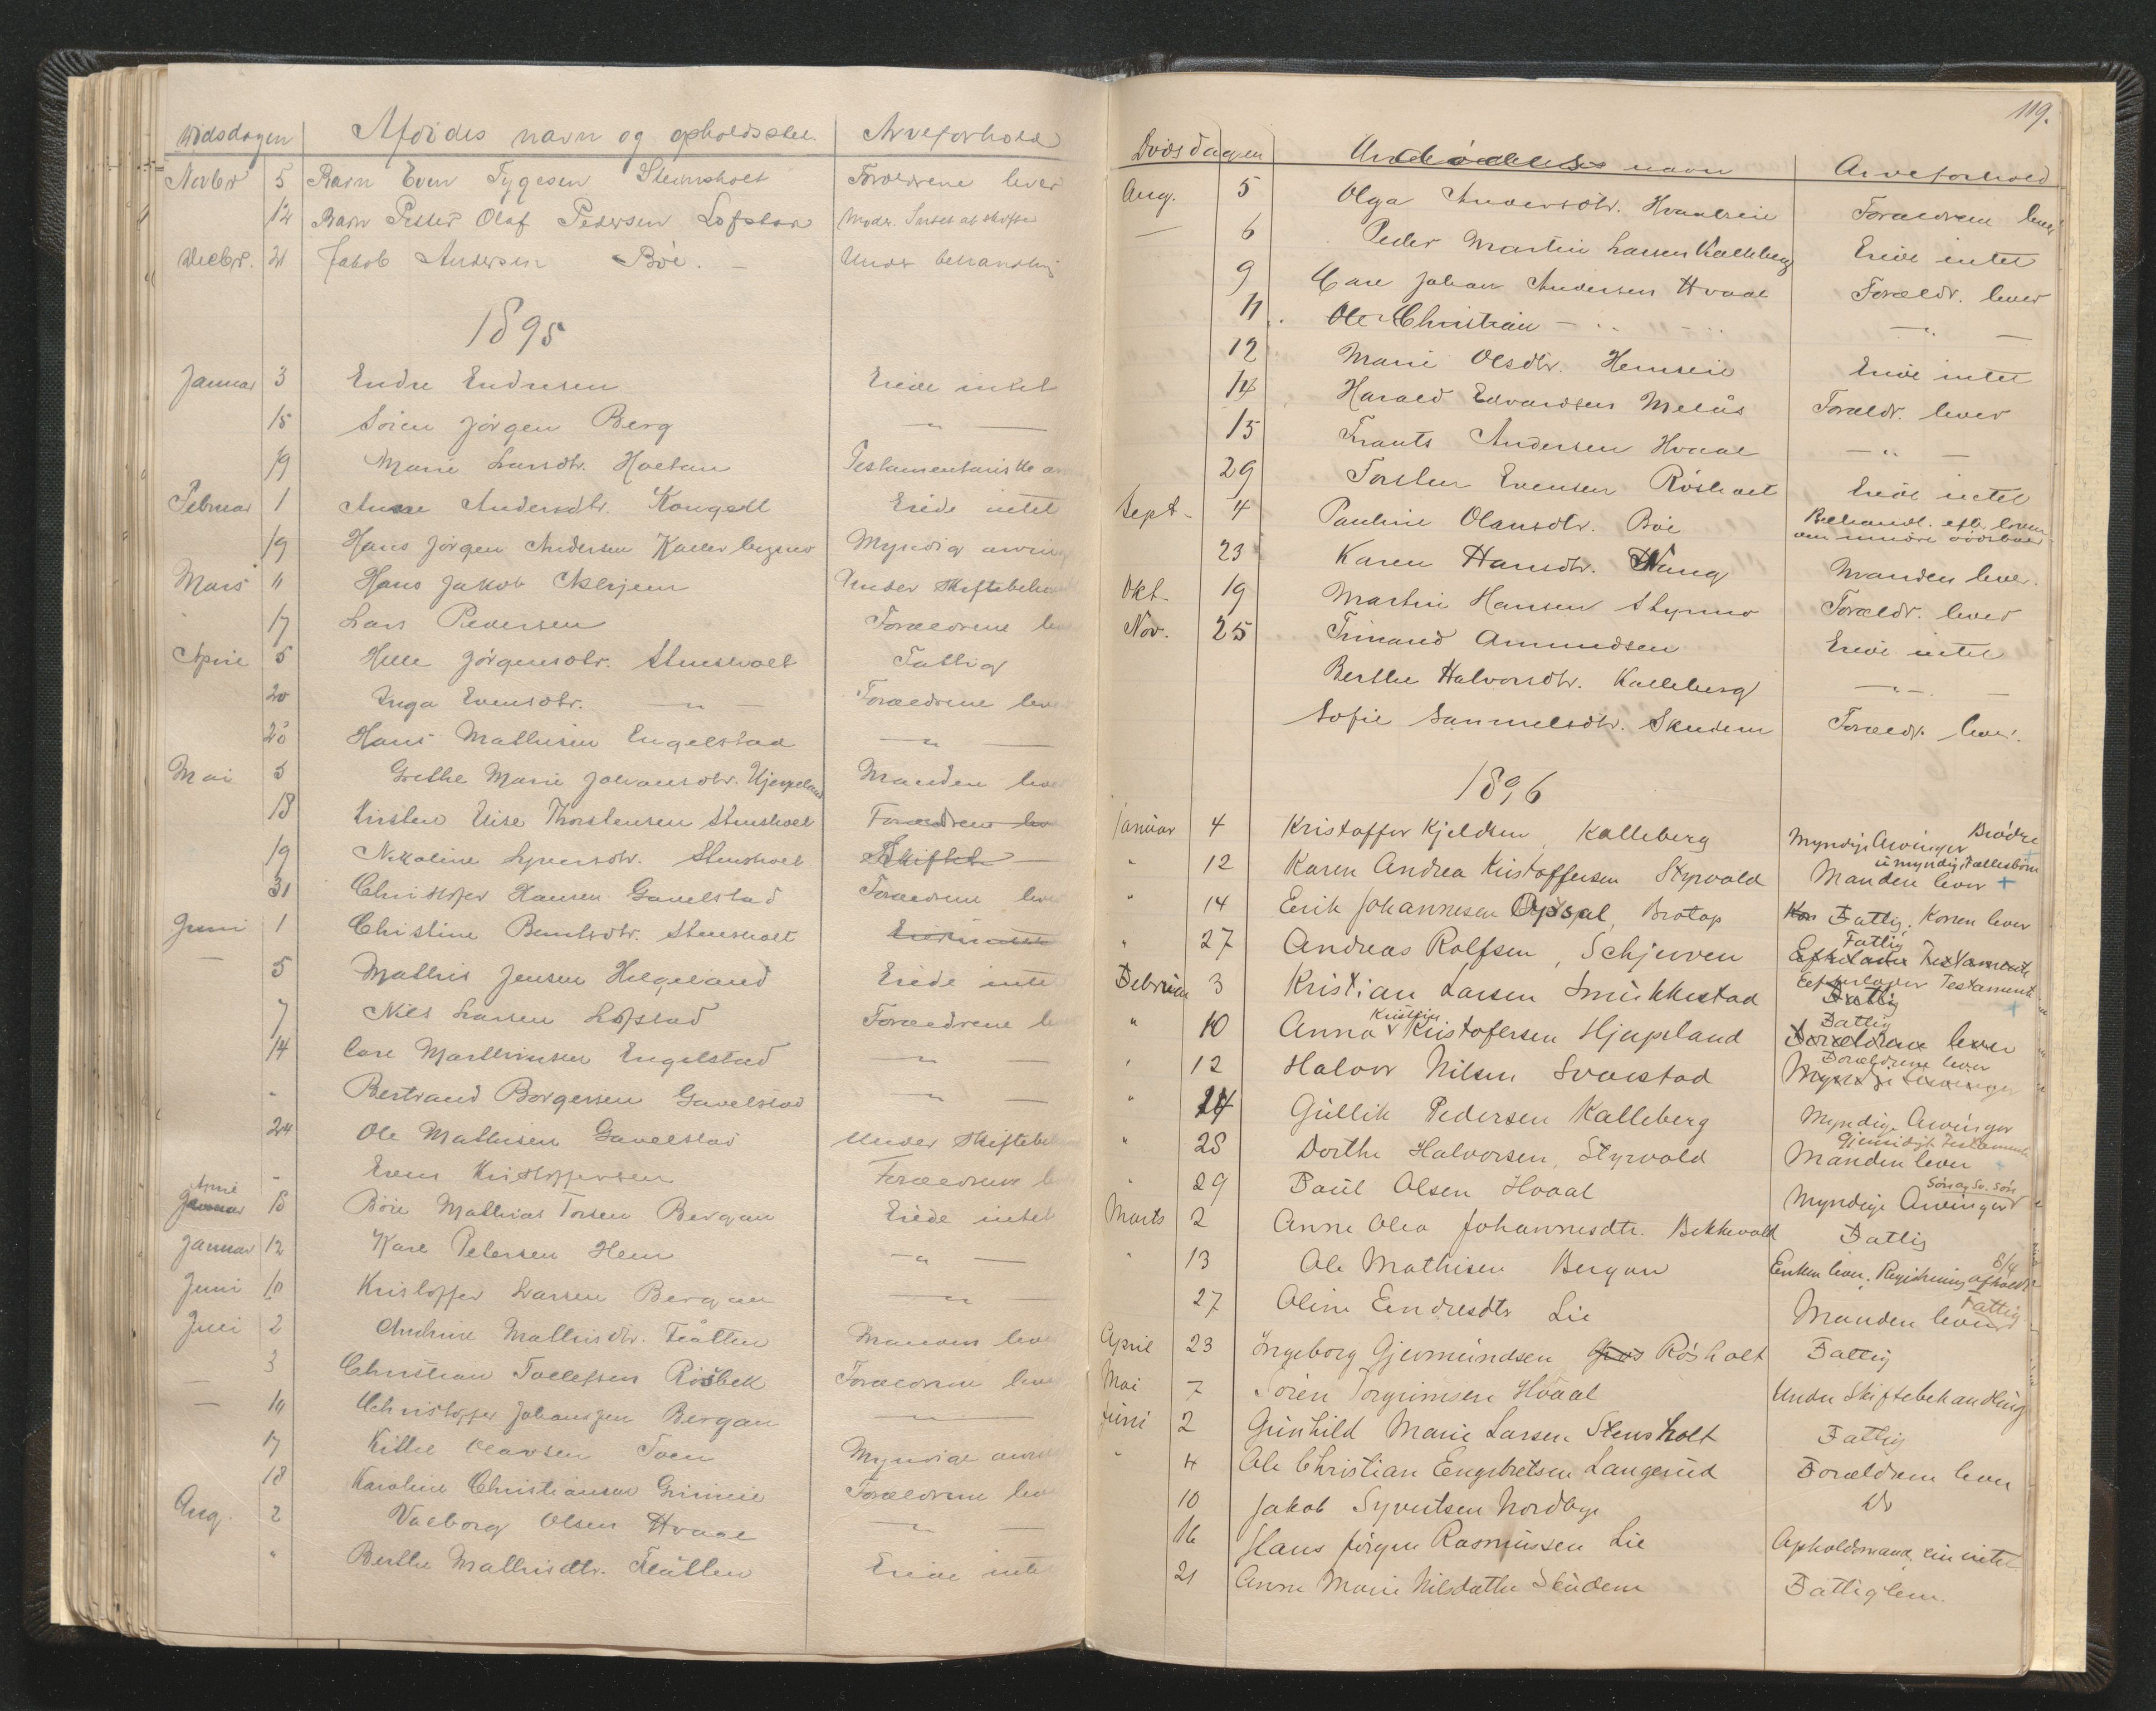 Dödsdagen Afdödes navn og opholdssted. Arveforhold
Novbr 5 Barn Even Tygesen Stensholt Forældrene lever
12 Barn Petter Olaf Pedersen Lofstad Moder. Intet at skifte
Decbr. 21 Jakob Andersen Böe. — Under behandling
1895
Januar 3 Endre Endresen Eiede intet
15 Sören Jörgen Berg — " —
19 Marie Larsdtr. Hoetan Testamentariske
Februar 1 Anne Andersdtr. Kongell Eiede intet
19 Hans Jörgen Andersen Myndig
Mars 11 Hans Jakob Askjem Under Skiftebeh
17 Lars Pedersen Forældrene lever
April 5 Helle Jörgensdtr. Stensholt Fattig
20 Inga Evensdtr. — " — Forældrene lever
Hans Mathisen Engelstad — " —
Mai 5 Grethe Marie Johansdtr. Hjerpeland Manden lever
18 Kirsten Elise Thorstensen Stensholt Forældrene lev
19 Nikoline Syversdtr. Stensholt Skiftet —
31 Christoffer Hansen Gavelstad Forældrene lever
Juni 1 Christine Berntsdtr. Stensholt
— 5 Mathis Jensen Helgeland Eiede intet
7 Nils Larsen Lofstad Forældrene lever
14 Carl Marthinsen Engelstad — " —
- Bertrand Borgersen Gavelstad — " —
24 Ole Mathisen Gavelstad Under Skiftebeh
- Even Kristoffersen Forældrene lever
Januar 18 Böie Mathias Torsen Bergan Eiede intet
Januar 12 Karl Petersen Hem — " —
Juni 10 Kristoffer Larsen Bergan — " —
Juli 2 Andrine Mathisdtr. Flåtten Manden lever
— 3 Christian Tollefsen Rösbek Forældrene lever
— 10 Christoffer Johansen Bergan — " —
17 Kittil Olavsen Toen Myndige
18 Karoline Christiansen Grinnie Forældrene lever
Aug. 2 Valborg Olsen Hvaal — " —
" Berthe Mathisdtr. Flåtten Eiede intet
119.
Dödsdagen navn Arveforhold
Aug. 5 Olga Andersdtr. Forældrene lever
— 6 Peder Martin Larsen Kalleberg Eiede intet
9 Carl Johan Andersen Hvaal Forældr. lever
11 Ole Christian — " — — " —
12 Marie Olsdtr. Hemseie Eiede intet
14 Harald Edvardsen Melås Forældr. lever
15 Frants Andersen Hvaal — " —
29 Torsten Evensen Rösholt Eiede intet
Sept - 4 Pauline Olausdtr. Böe Behandl. eft. loven
om mindre dödsboer
23 Karen Hansdtr. Haug Manden lever.
Okt- 19 Martin Hansen Styrmo Forældr. lever
Nov. 25 Trinand Amundsen Eiede intet
Berthe Halvorsdtr. Kalleberg — " —
Sofie Samuelsdtr. Skudem Forældr. lever.
1896
Januar 4 Kristoffer Kjeldsen, Kalleberg Myndige Arvinger Brödre
" 12 Karen Andrea Kristoffersen Styrvold umyndig Fællesbörn
Manden lever +
" 14 Erik Johannesen Opsal, Brotop Kon Fattig. Konen lever
" 27 Andreas Rolfsen, Schjerven Fattig
Efterlader Testamente
Februar 3 Kristian Larsen Smukkestad Efterlader Testament
Fattig
" 10 Anna Kristine Kristofersen Hjapeland Fattig
Forældrene lever
" 12 Halvor Nilsen Svarstad Forældrene lever
Myndige Arvinger
" 24 Gullik Pedersen Kalleberg Myndige Arvinger
" 28 Dorthe Halvorsen, Styrvold Gjensidigt Testamente
Manden lever
" 29 Paul Olsen Hvaal Myndige Arvinger Sön og Sv. sön
Marts 2 Anne Olea Johannesdtr. Bekkevold Fattig
" 13 Ole Mathisen Bergan Enken lever. Registrering afholdt 8/4
27 Oline Endresdtr Lie Manden lever Fattig
April 23 Ingeborg Gjermundsen Rösholt Fattig
Mai 7 Sören Torgrimsen Hvaal Under Skiftebehandling
Juni 2 Gunhild Marie Larsen Stensholt Fattig
" 4 Ole Christian Engebretsen Langerud Forældrene lever
10 Jakob Syvertsen Nordbye Do
16 Hans Jörgen Rasmussen Lie Opholdsmand, eier intet
21 Anne Marie Nilsdatter Skudem Fattiglem.